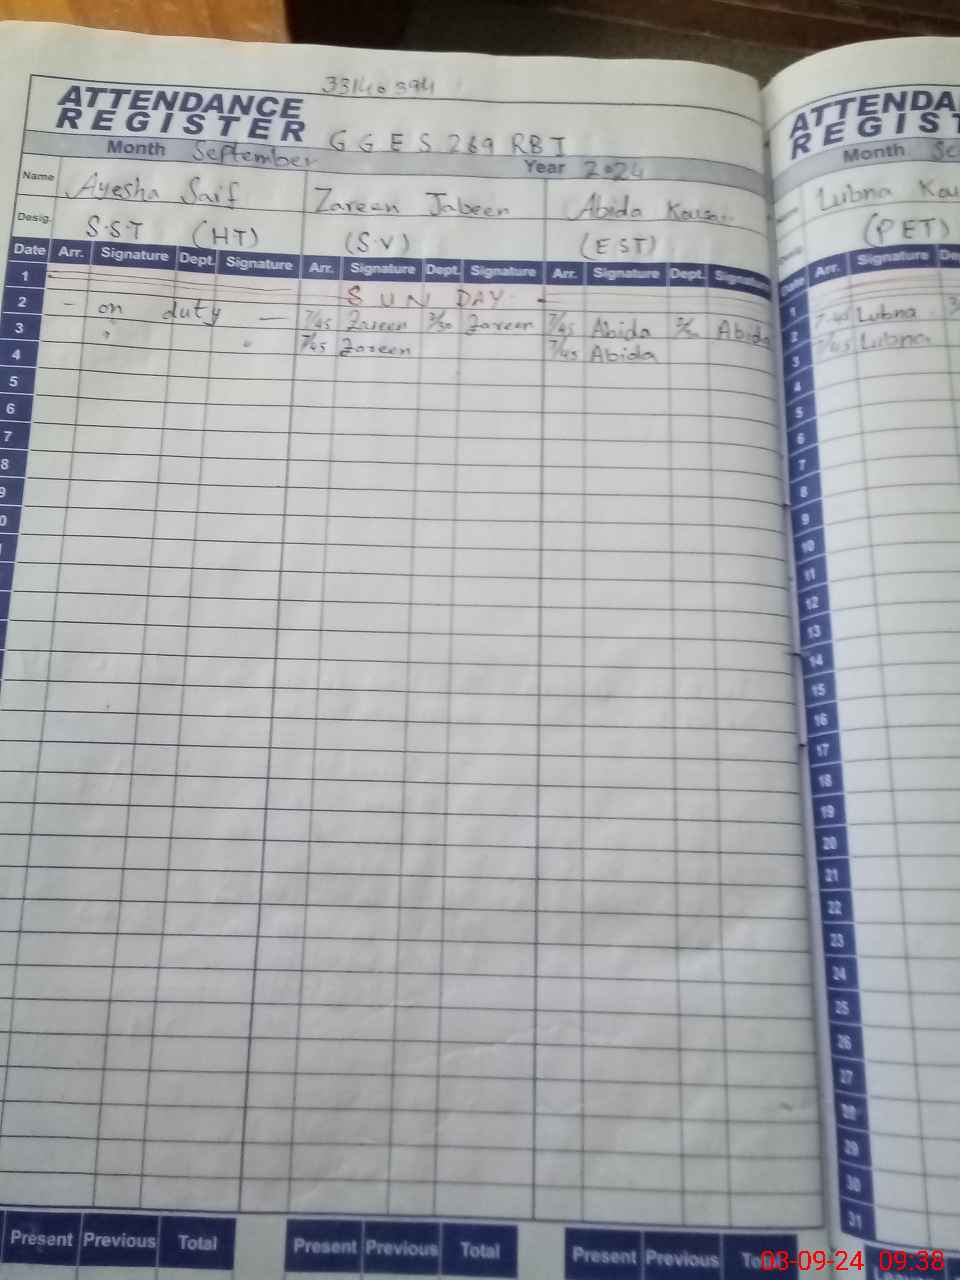 33140394
ATTENDANCE
REGISTER
G G E S 269 RBI
Month September
Year 2024
Name Ayesha Saif Zareen Jabeen Abida
Desig. S.S.T (HT) (S.V) (EST)
Date Arr. Signature Dept. Signature Arr. Signature Dept. Signature Arr. Signature Dept. Signature
1 SUNDAY
2 - on duty - 7/45 Zareen 3/30 Zareen 7/45 Abida Abida
3 " " 7/45 Zareen 7/45 Abida
4
5
6
7
8
9
0
Present Previous Total Present Previous Total Present Previous
ATTENDA
REGIST
Month
Lubna
(PET)
Date Arr. Signature
1 Lubna
2 7/45 Lubna
3
4
5
6
7
8
9
10
11
12
13
14
15
16
17
18
19
20
21
22
23
24
25
26
27
28
29
30
31
03-09-24 09:38